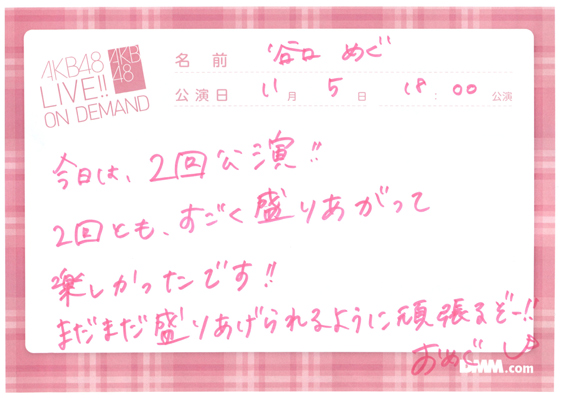 AKB48
LIVE!!
ON DEMAND
AKB
48
名前 谷口 めぐ
公演日 11月 5日 18:00 公演
今日は、2回公演!!
2回とも、すごく盛りあがって
楽しかったです!!
まだまだ盛りあげられるように頑張るぞー!!
おめぐし
DMM.com